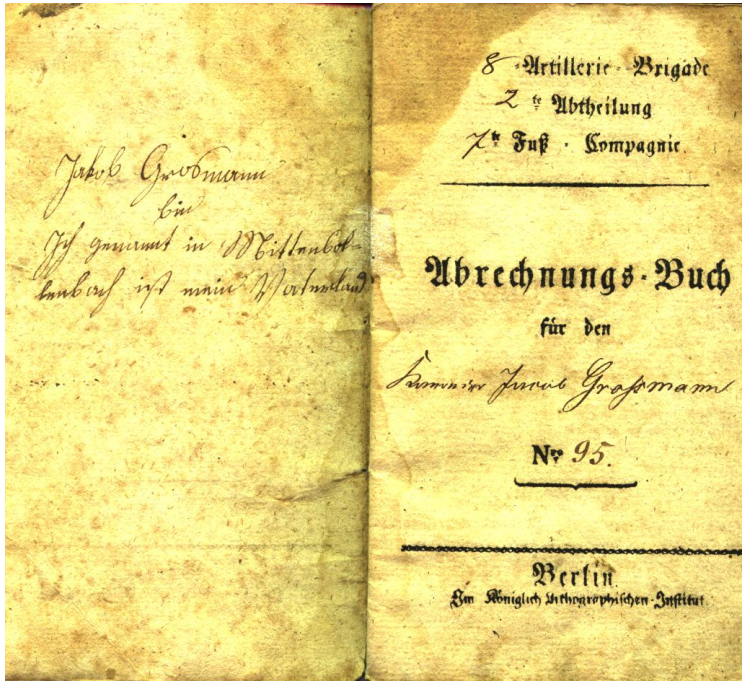 Jakob Grosmann
bin
Ich genannt in Mittenbol-
lenbach ist mein Vaterland
8 Artillerie-Brigade
2 te Abtheilung
7 te Fuß-Compagnie.
Abrechnungs-Buch
für den
Kanonier Jacob Grossmann
Nro 95.
Berlin
Im Königlich Lithographischen-Institut